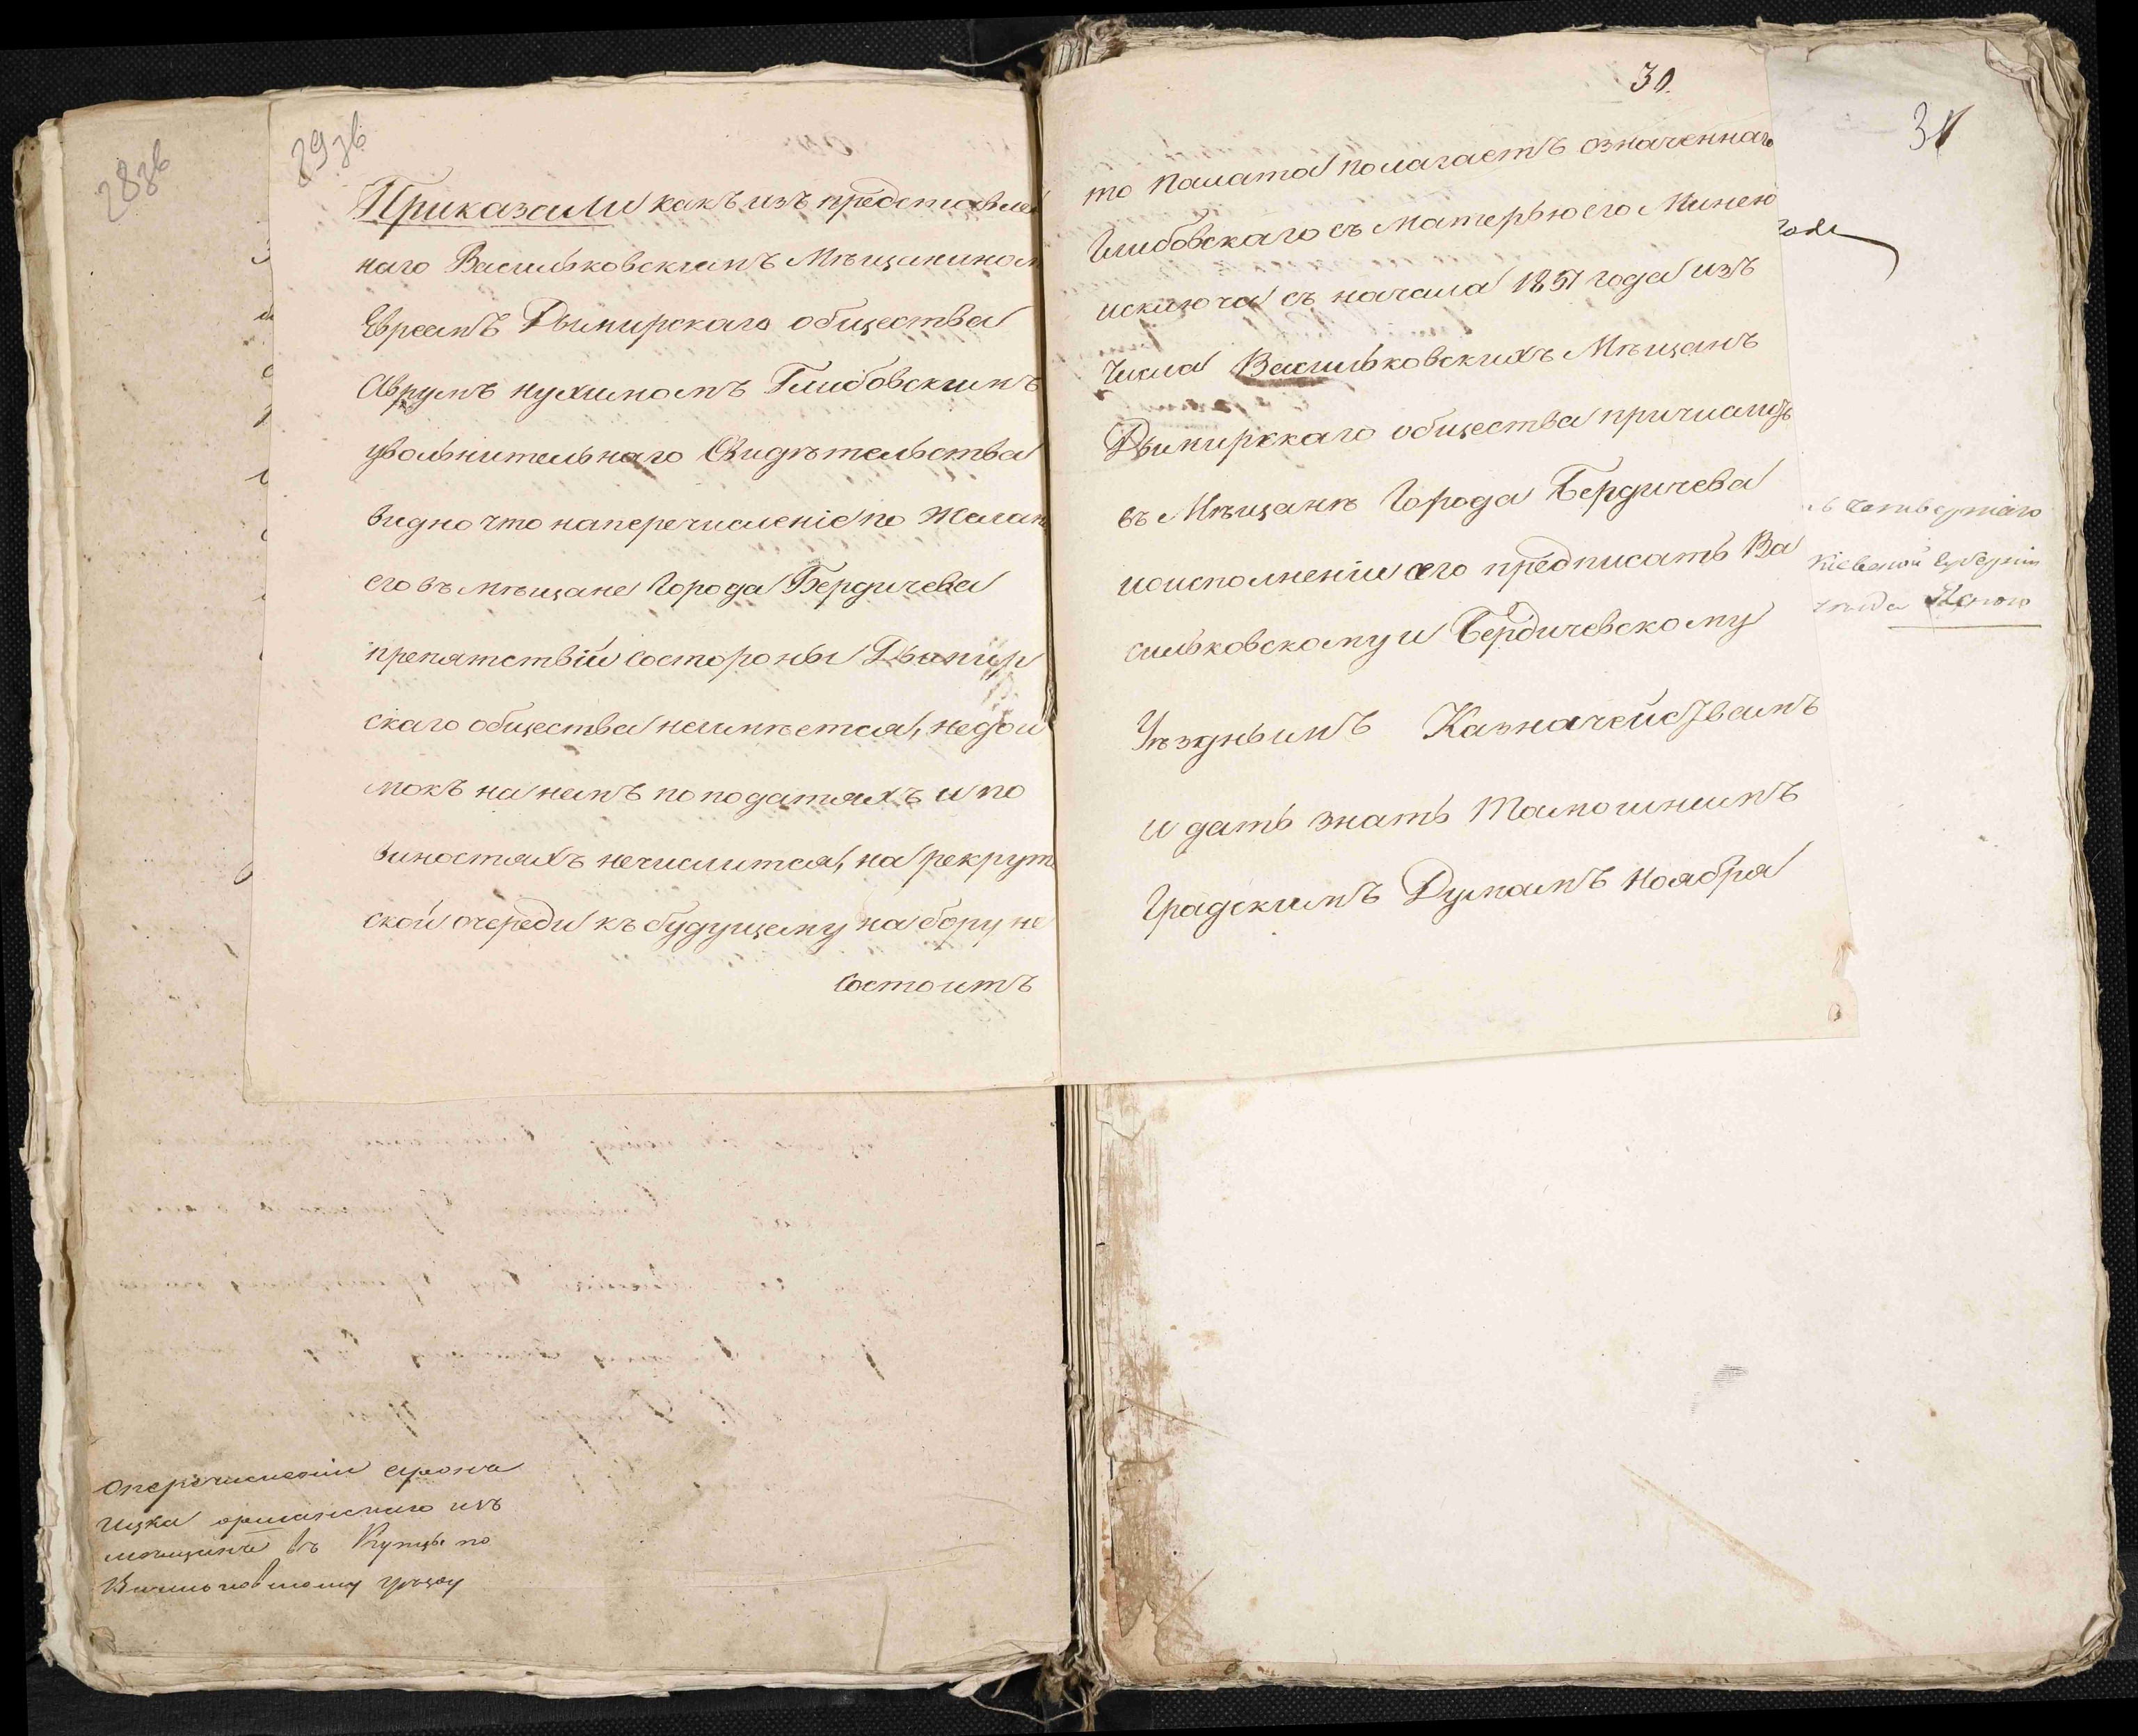 28зв
29зв
Приказали какъ изъ представлен
наго Васильковскимъ Мѣщаниномъ
Евреемъ Дымирскаго общества
Аврумъ Нухимомъ Глибовскимъ
увольнительнаго Свидѣтельства
видно что наперечисленіе по желан
его въ мѣщане Города Бердичева
препятствій состороны Дымир
скаго общества неимѣется, недои
мокъ на немъ по податяхъ и по
виностяхъ нечислится, на рекрут
ской очереди къ будущему набору не
состоитъ
оперечисленіи
изъ
мѣщанъ въ Купцы по
Васильковскому уѣзду
30.
то Палата полагаетъ означеннаго
Глибовскаго съ матерью его Минею
исключа съ начала 1851 года изъ
числа Васильковскихъ Мѣщанъ
Дымирскаго общества причислить
въ Мѣщане Города Бердичева
иоисполненіи сего предписать Ва
сильковскому и Бердичевскому
Уѣзднымъ Казначействамъ
и дать знать Тамошнимъ
Градскимъ Думамъ Ноября
31
года
четвертаго
Кіевской Губерніи